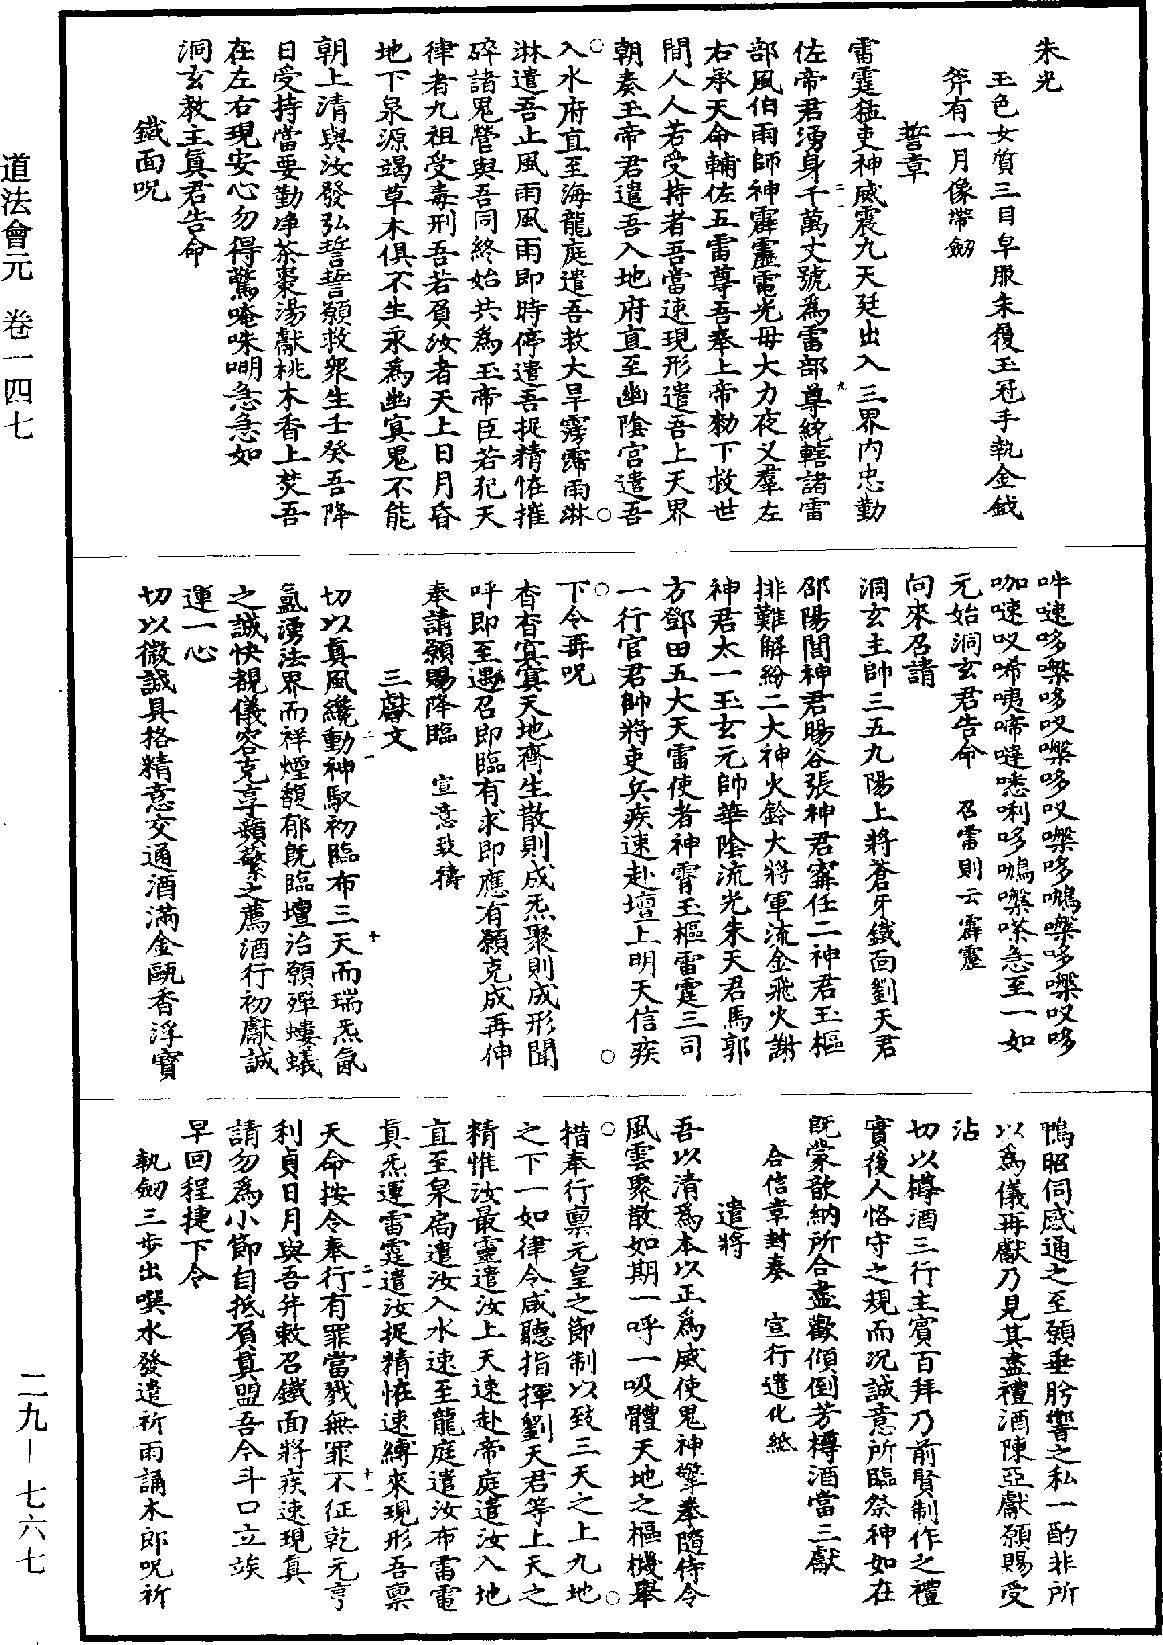 道法會元　卷一四七
朱光
玉色女質三目皁服朱履玉冠手執金鉞
斧有一月像帶劒
誓章
雷霆猛吏神威震九天廷出入三界內忠勤
佐帝君湧身千萬丈號爲雷部尊統轄諸雷
部風伯雨師神霹靂電光母大力夜叉羣左
右承天命輔佐五雷尊吾奉上帝勑下救世
間人人若受持者吾當速現形遣吾上天界
朝奏玉帝君遣吾入地府直至幽陰宮遣吾
入水府直至海龍庭遣吾救大旱霶霈雨淋
淋遣吾止風雨風雨即時停遣吾捉精恠摧
碎諸鬼營與吾同終始共爲玉帝臣若犯天
律者九祖受毒刑吾若負汝者天上日月昏
地下泉源竭草木俱不生永爲幽冥鬼不能
朝上清與汝發弘誓誓願救衆生壬癸吾降
日受持當要勤净茶棗湯獻桃木香上焚吾
在左右現安心勿得驚唵咮㖟急急如
洞玄教主眞君告命
鐵面呪
吽㖀哆㗫哆㕧㗫哆㕧㗫哆鵭㗫哆㗫㕧哆
咖㖀㕧唏咦啼噠㗭唎哆鵭㗫㗫急至一如
元始洞玄君告命　召雷則云霹靂
向來召請
洞玄主帥三五九陽上將蒼牙鐵面劉天君
邵陽閻神君暘谷張神君寗任二神君玉樞
排難解紛二大神火鈴大將軍流金飛火謝
神君太一玉玄元帥華陰流光朱天君馬郭
方鄧田五大天雷使者神霄玉樞雷霆三司
一行官君帥將吏兵疾速赴壇上明天信疾
下令再呪
杳杳冥冥天地齊生散則成炁聚則成形聞
呼即至遇召即臨有求即應有願克成再伸
奉請願賜降臨　宣意致禱
三獻文
切以眞風纔動神馭初臨布三天而瑞炁氤
氳湧法界而祥煙馥郁旣臨壇治願殫螻蟻
之誠快覩儀容克享蘋蘩之薦酒行初獻誠
運一心
切以微誠具格精意交通酒滿金甌香浮寶
鴨昭伺感通之至願垂肹響之私一酌非所
以爲儀再獻乃見其盡禮酒陳亞獻願賜受
沾
切以樽酒三行主賓百拜乃前賢制作之禮
實後人恪守之規而況誠意所臨祭神如在
旣蒙歆納所合盡歡傾倒芳樽酒當三獻
合信章封奏　宣行遣化紙
遣將
吾以清爲本以正爲威使鬼神擎拳隨侍令
風雲聚散如期一呼一吸體天地之樞機舉
措奉行禀元皇之節制以致三天之上九地
之下一如律令咸聽指揮劉天君等上天之
精惟汝最靈遣汝上天速赴帝庭遣汝入地
直至泉扃遣汝入水速至龍庭遣汝布雷電
眞炁運雷霆遣汝捉精恠速縛來現形吾禀
天命按令奉行有罪當戮無罪不征乾元亨
利貞日月與吾并敕召鐵面將疾速現眞
請勿爲小節自抵負眞盟吾今斗口立竢
早回程捷下令
執劒三步出噀水發遣祈雨誦木郎呪祈
二九—七六七